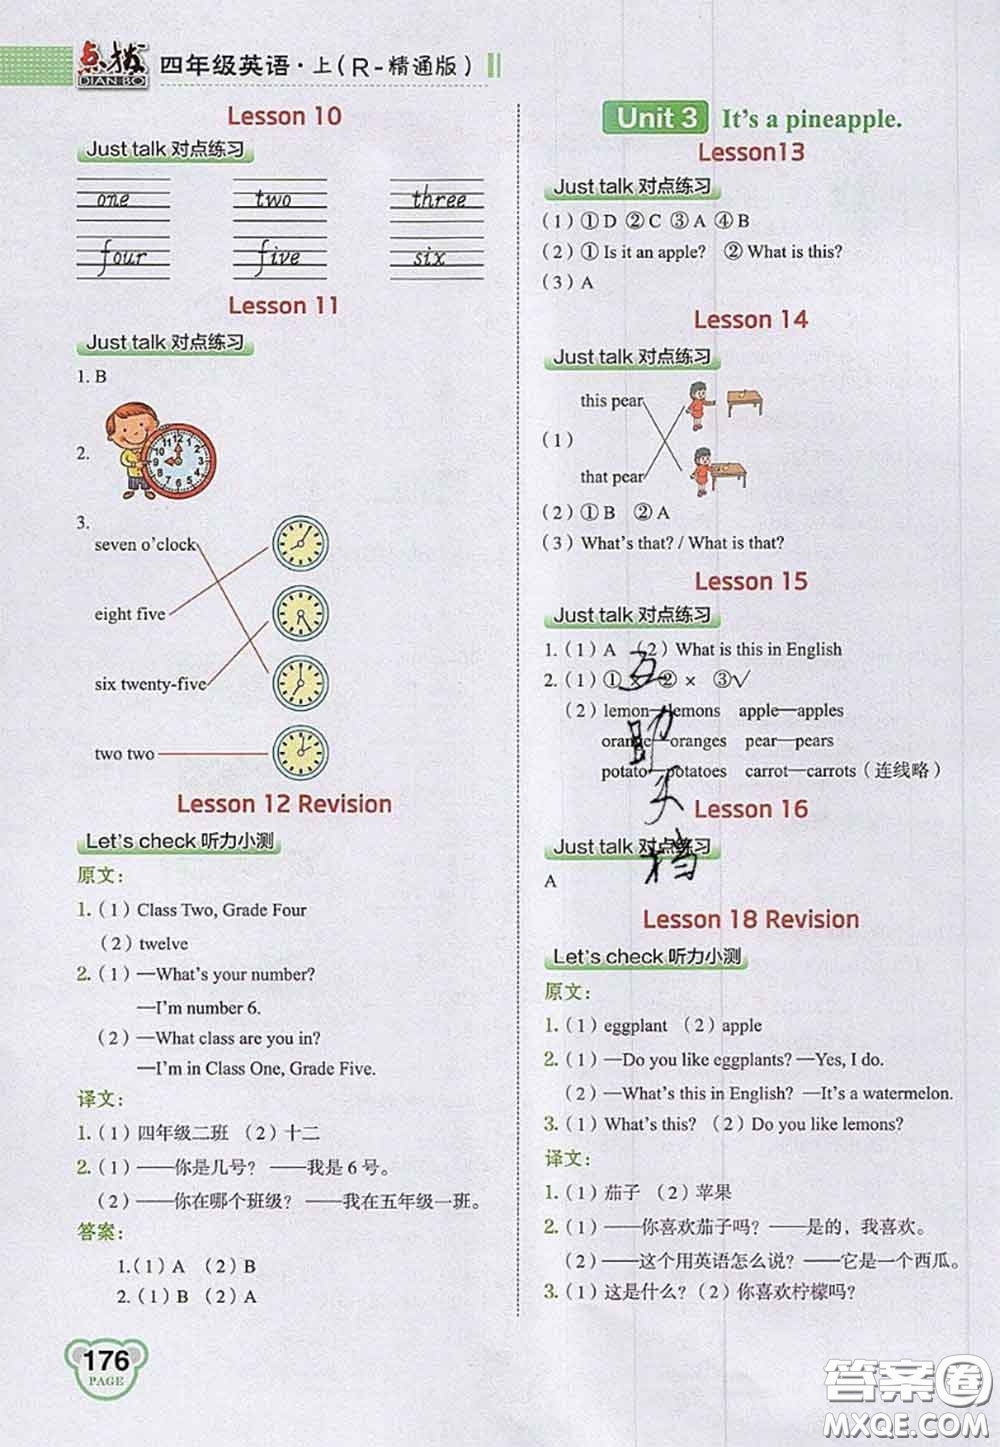 点拨
DIAN BO
四年级英语·上(R-精通版)
Lesson 10
Just talk 对点练习
one two three
four five six
Lesson 11
Just talk 对点练习
1. B
2.
3.
seven o'clock
eight five
six twenty-five
two two
Lesson 12 Revision
Let's check 听力小测
原文：
1.（1）Class Two, Grade Four
（2）twelve
2.（1）—What's your number?
—I'm number 6.
（2）—What class are you in?
—I'm in Class One, Grade Five.
译文：
1.（1）四年级二班 （2）十二
2.（1）——你是几号？ ——我是6号。
（2）——你在哪个班级？ ——我在五年级一班。
答案：
1.（1）A （2）B
2.（1）B （2）A
176
PAGE
Unit 3 It's a pineapple.
Lesson13
Just talk 对点练习
（1）①D ②C ③A ④B
（2）① Is it an apple? ② What is this?
（3）A
Lesson 14
Just talk 对点练习
this pear
（1）
that pear
（2）①B ②A
（3）What's that? / What is that?
Lesson 15
Just talk 对点练习
1.（1）A （2）What is this in English
2.（1）①× ②× ③√
（2）lemon—lemons apple—apples
orange—oranges pear—pears
potato—potatoes carrot—carrots（连线略）
Lesson 16
Just talk 对点练习
A
Lesson 18 Revision
Let's check 听力小测
原文：
1.（1）eggplant （2）apple
2.（1）—Do you like eggplants? —Yes, I do.
（2）—What's this in English? —It's a watermelon.
3.（1）What's this? （2）Do you like lemons?
译文：
1.（1）茄子 （2）苹果
2.（1）——你喜欢茄子吗？——是的，我喜欢。
（2）——这个用英语怎么说？——它是一个西瓜。
3.（1）这是什么？（2）你喜欢柠檬吗？
答案圈
MXQE.COM